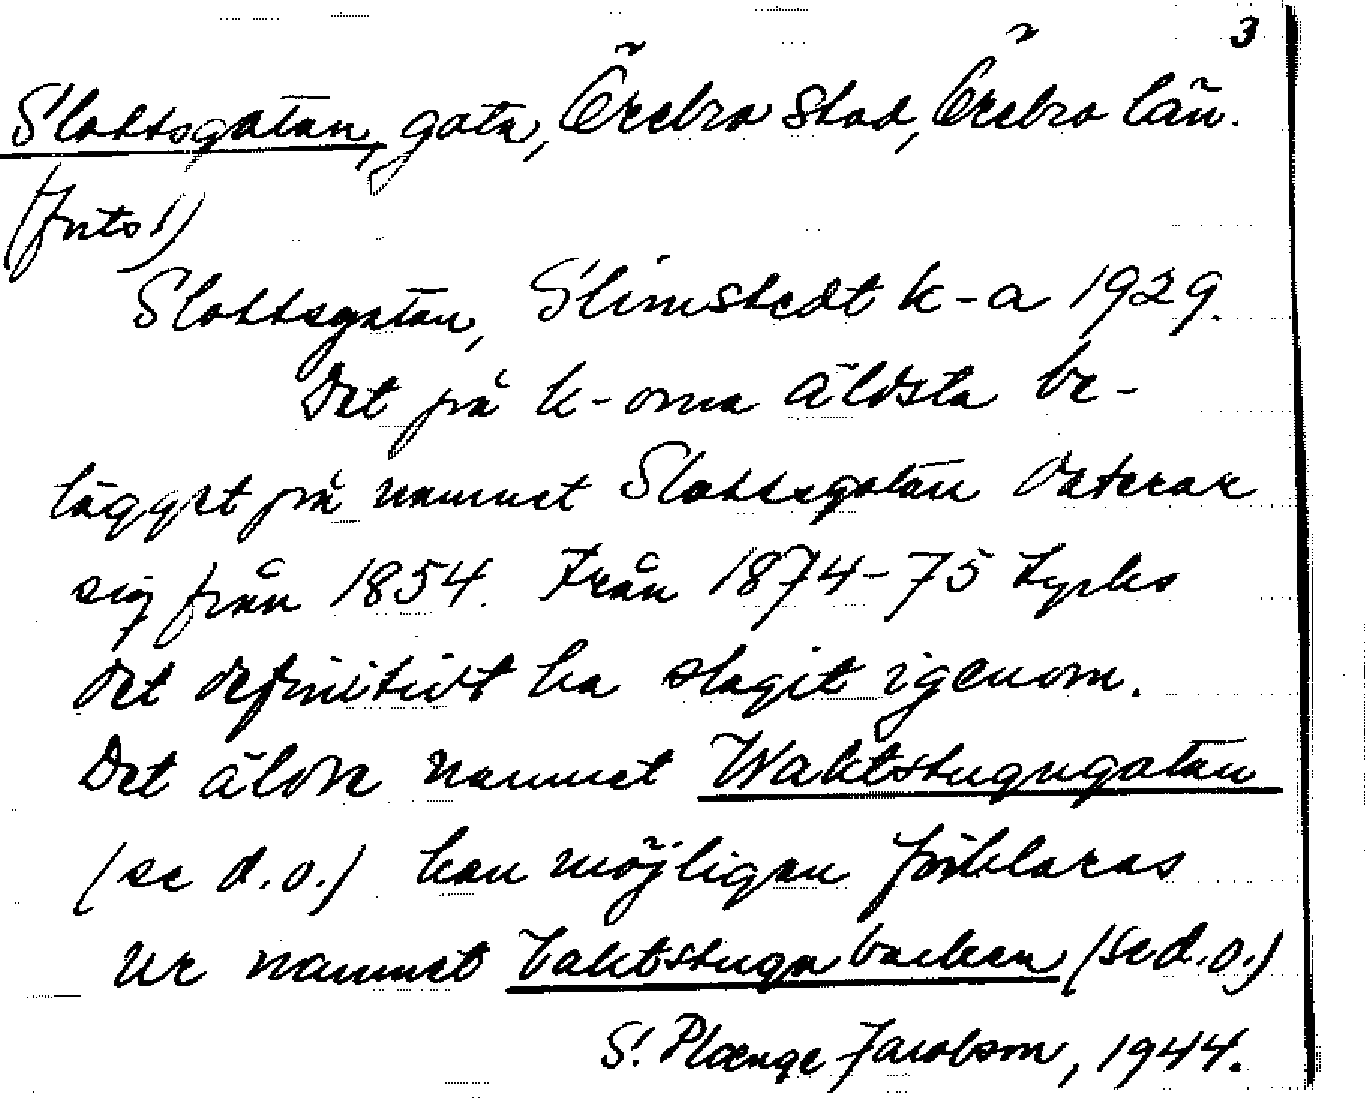 3
Slottsgatan, gata, Örebro stad, Örebro län.
(forts 1)
Slottsgatan, Slimstedt k-a 1929.
Det på k-orna äldsta be-
lägget på namnet Slottsgatan daterar
sig från 1854. Från 1874-75 tycks
det definitivt ha slagit igenom.
Det äldre namnet Waktstugugatan
(se d.o.) kan möjligen förklaras
ur namnet Vaktstugubacken (se d.o.)
S. Plænge Jacobson, 1944.